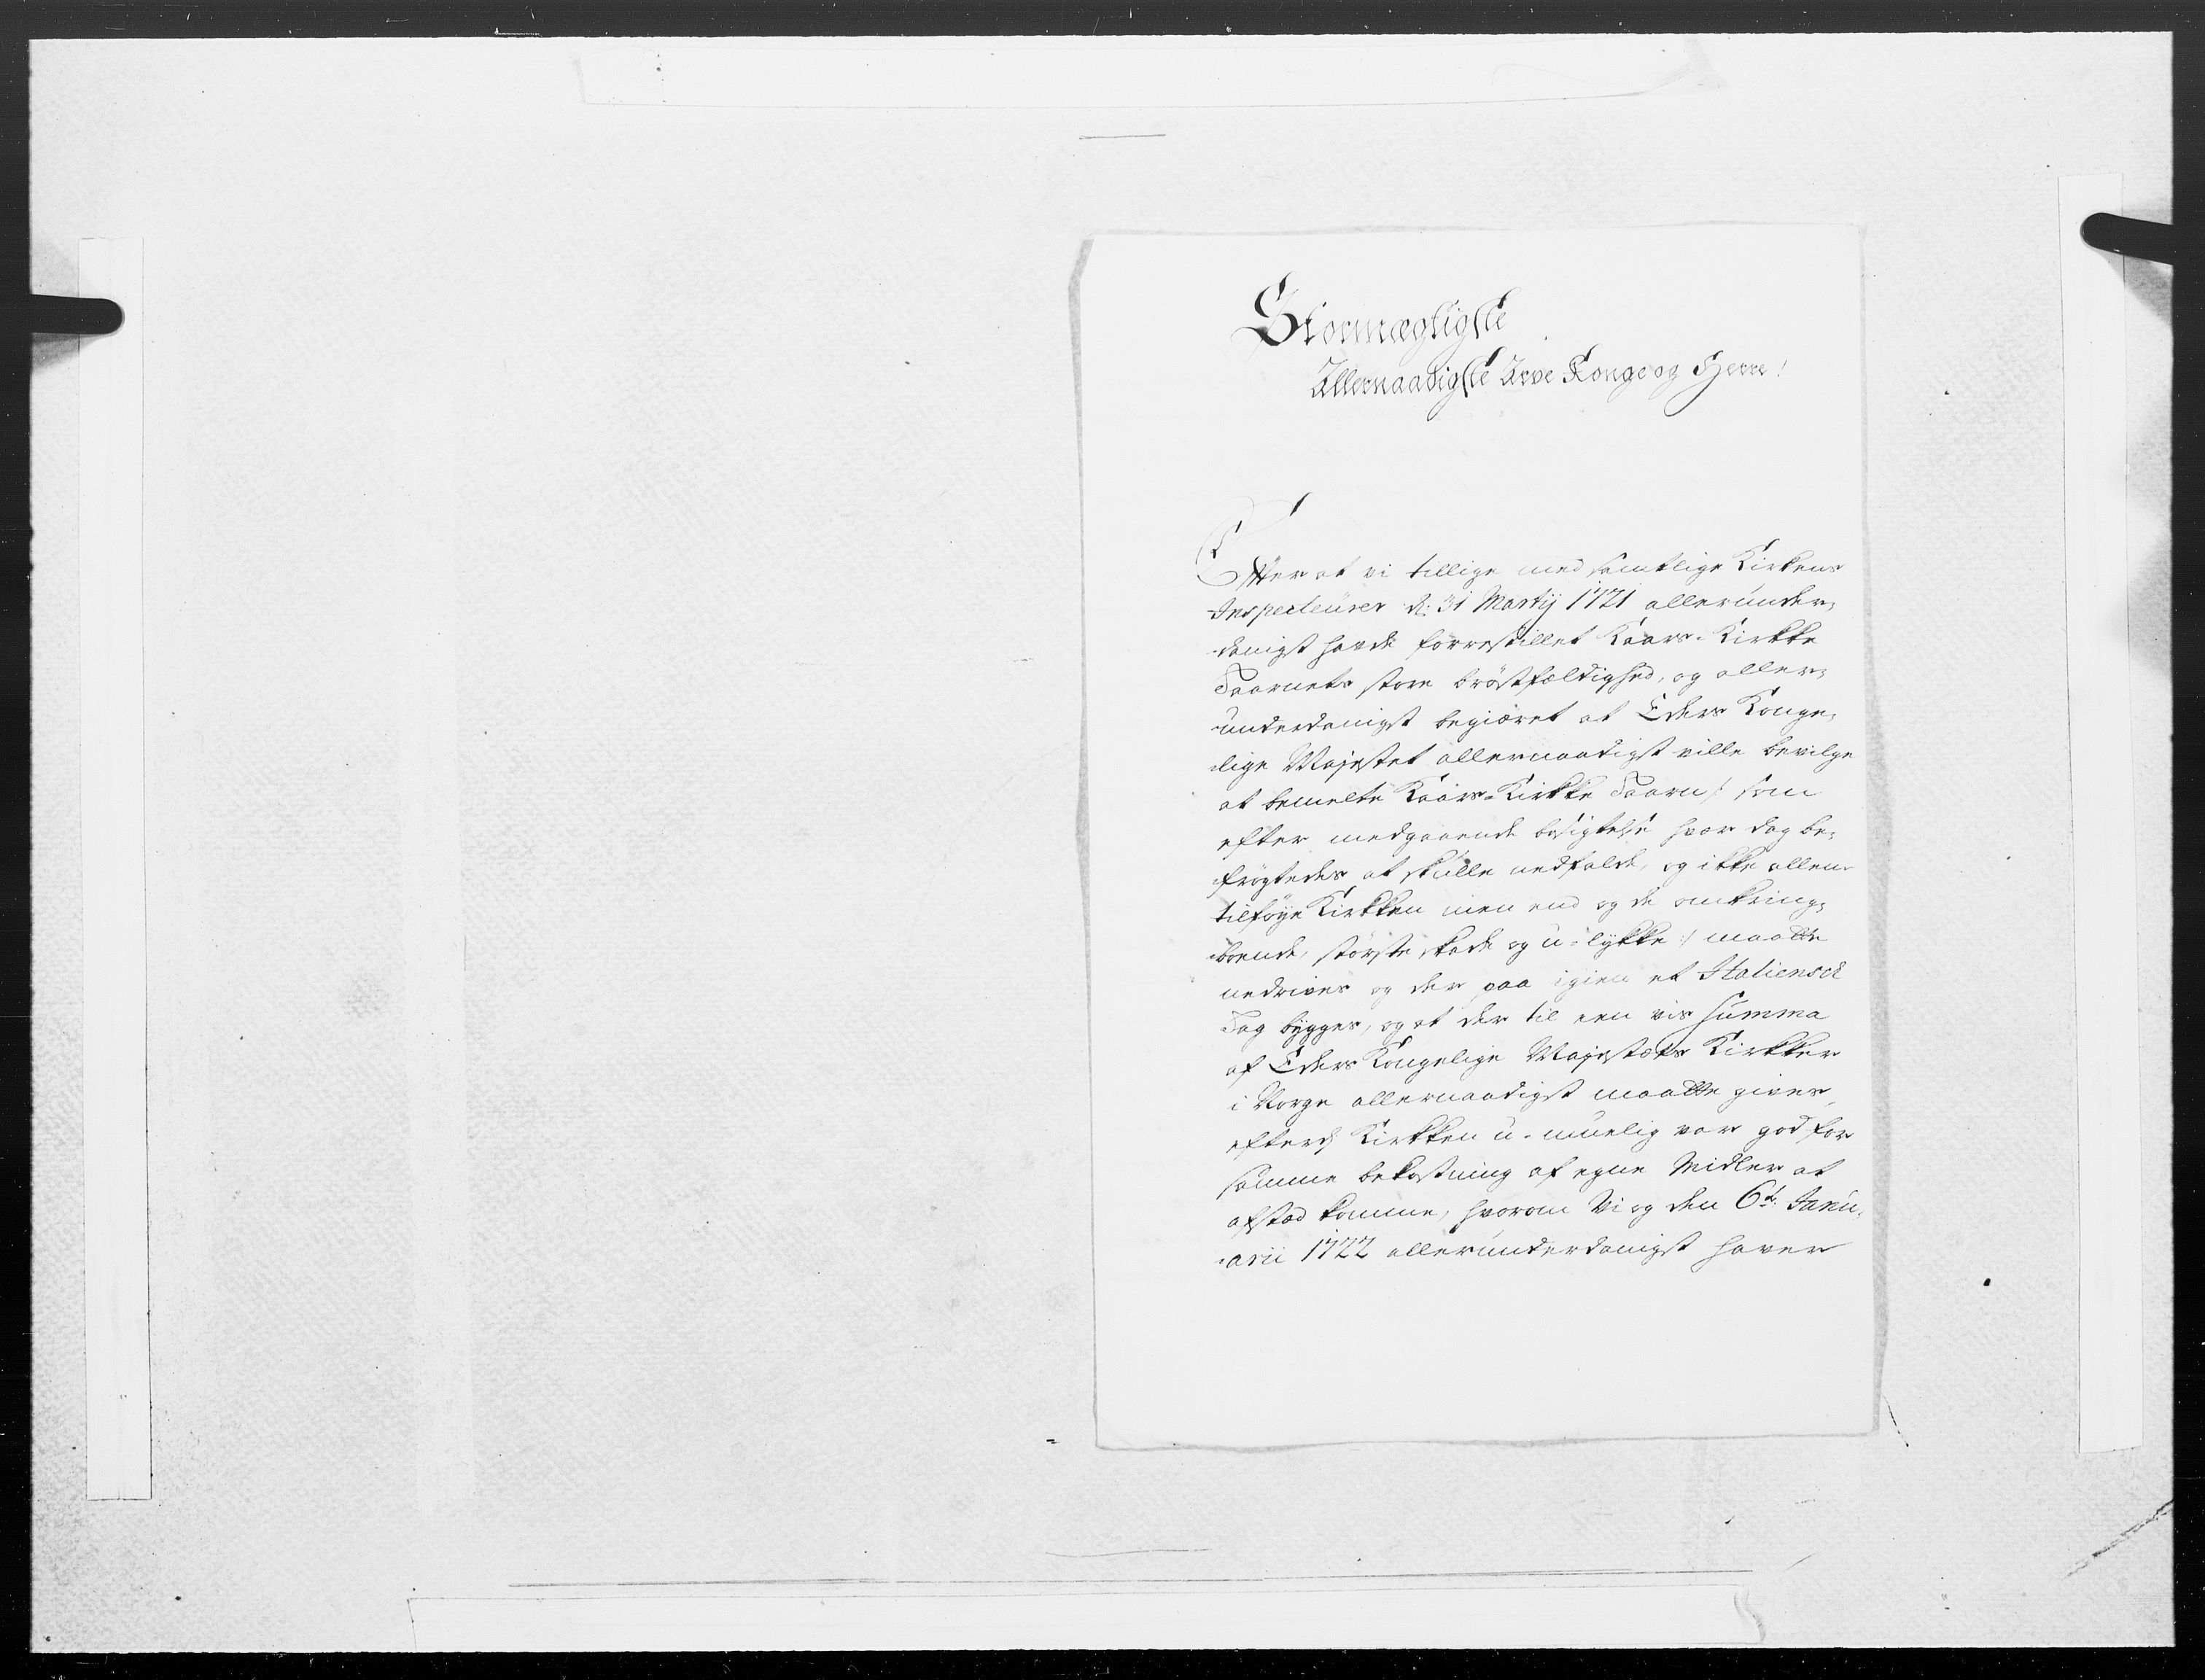 Stormægtigste
Allernaadigste Arve Konge og Herre!
Efter at vi tillige med samtlige Kirkens
Inspecteurer d: 31 Martij 1721 allerunder-
danigst hafde forrestillet Kaars-Kirkke
Taarnets store bröstfældighed, og aller-
underdanigst begiæret at Eders Konge-
lige Majestet allernaadigst ville bevilge
at bemelte Kaars-Kirkke Taarn /: som
efter medgaaende besigtelse hver dag be-
frögtedes at skulle nedfalde, og ikke allene
tilföye Kirkken men end og de omkring-
boende, störste skade og u-lykke :/ maatte
nedrives og der paa igien et Italiensch
Tag bygges, og at der til een vis Summa
af Eders Kongelige Majestets Kirkker
i Norge allernaadigst maatte gives,
efterd Kirkken u-muelig var god for
samme bekostning af egne Midler at
afstad komme, hvorom Vi og den 6te Janu-
arii 1722 allerunderdanigst haver